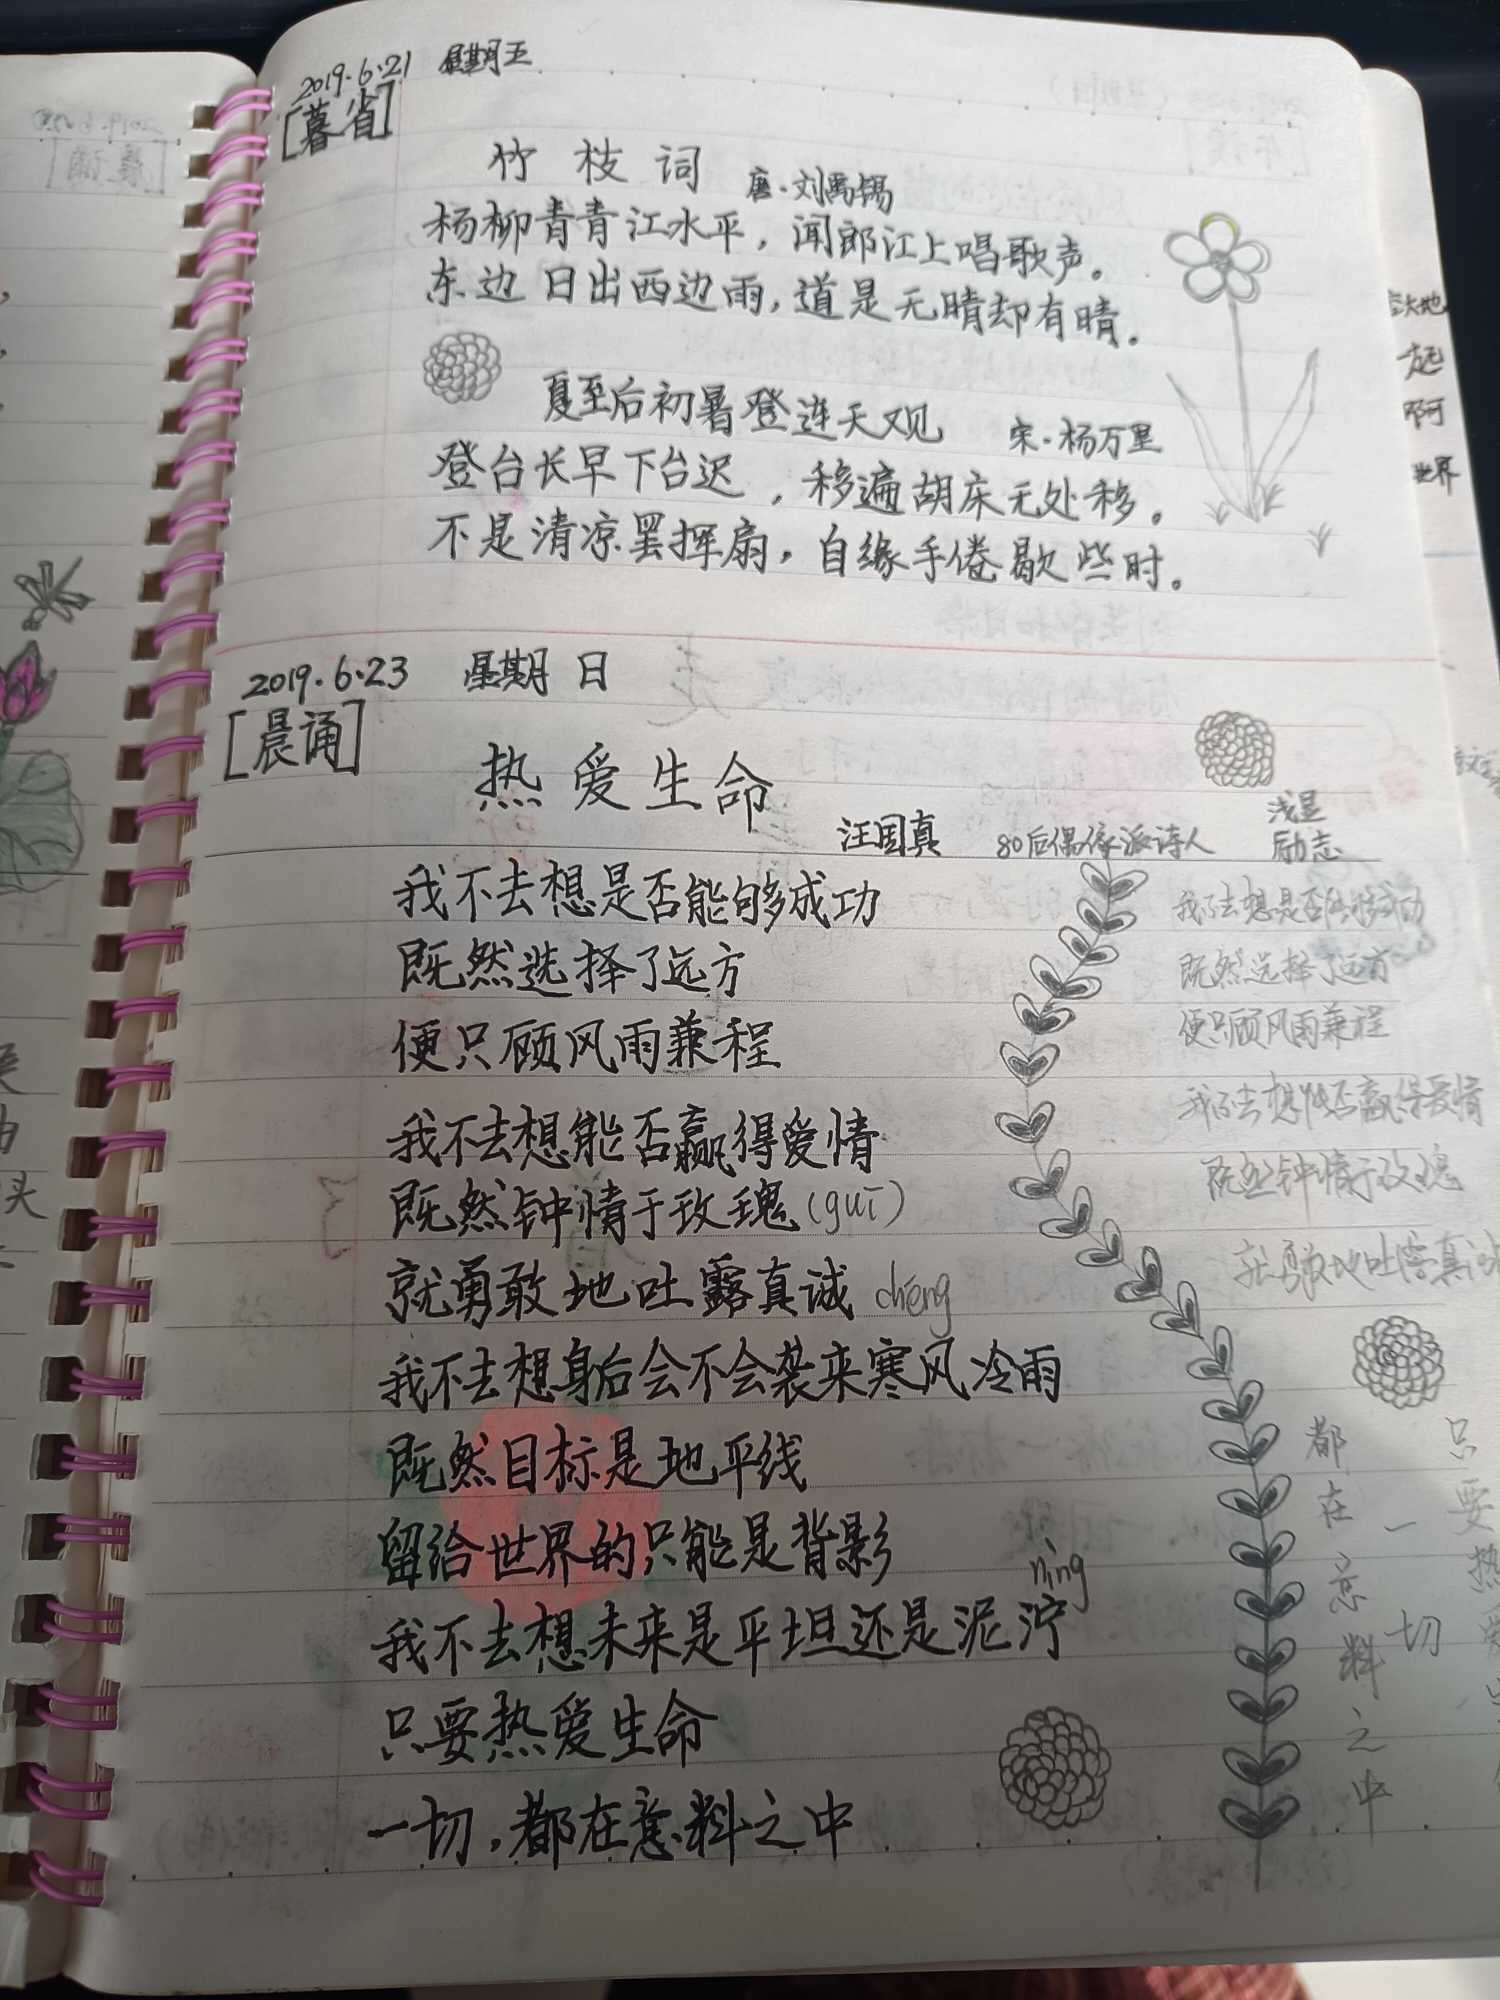 2019.6.21 星期五
[暮省]
竹枝词 唐·刘禹锡
杨柳青青江水平，闻郎江上唱歌声。
东边日出西边雨，道是无晴却有晴。
夏至后初暑登连天观 宋·杨万里
登台长早下台迟，移遍胡床无处移。
不是清凉罢挥扇，自缘手倦歇些时。
2019.6.23 星期日
[晨诵]
热爱生命
汪国真 80后偶像派诗人 浅显
励志
我不去想是否能够成功
既然选择了远方
便只顾风雨兼程
我不去想能否赢得爱情
既然钟情于玫瑰(guī)
就勇敢地吐露真诚 chéng
我不去想身后会不会袭来寒风冷雨
既然目标是地平线
留给世界的只能是背影
我不去想未来是平坦还是泥泞 nìng
只要热爱生命
一切,都在意料之中
我不去想是否能够成功
既然选择了远方
便只顾风雨兼程
我不去想能否赢得爱情
既然钟情于玫瑰
就勇敢地吐露真
只要热爱
一切
都在意料之中